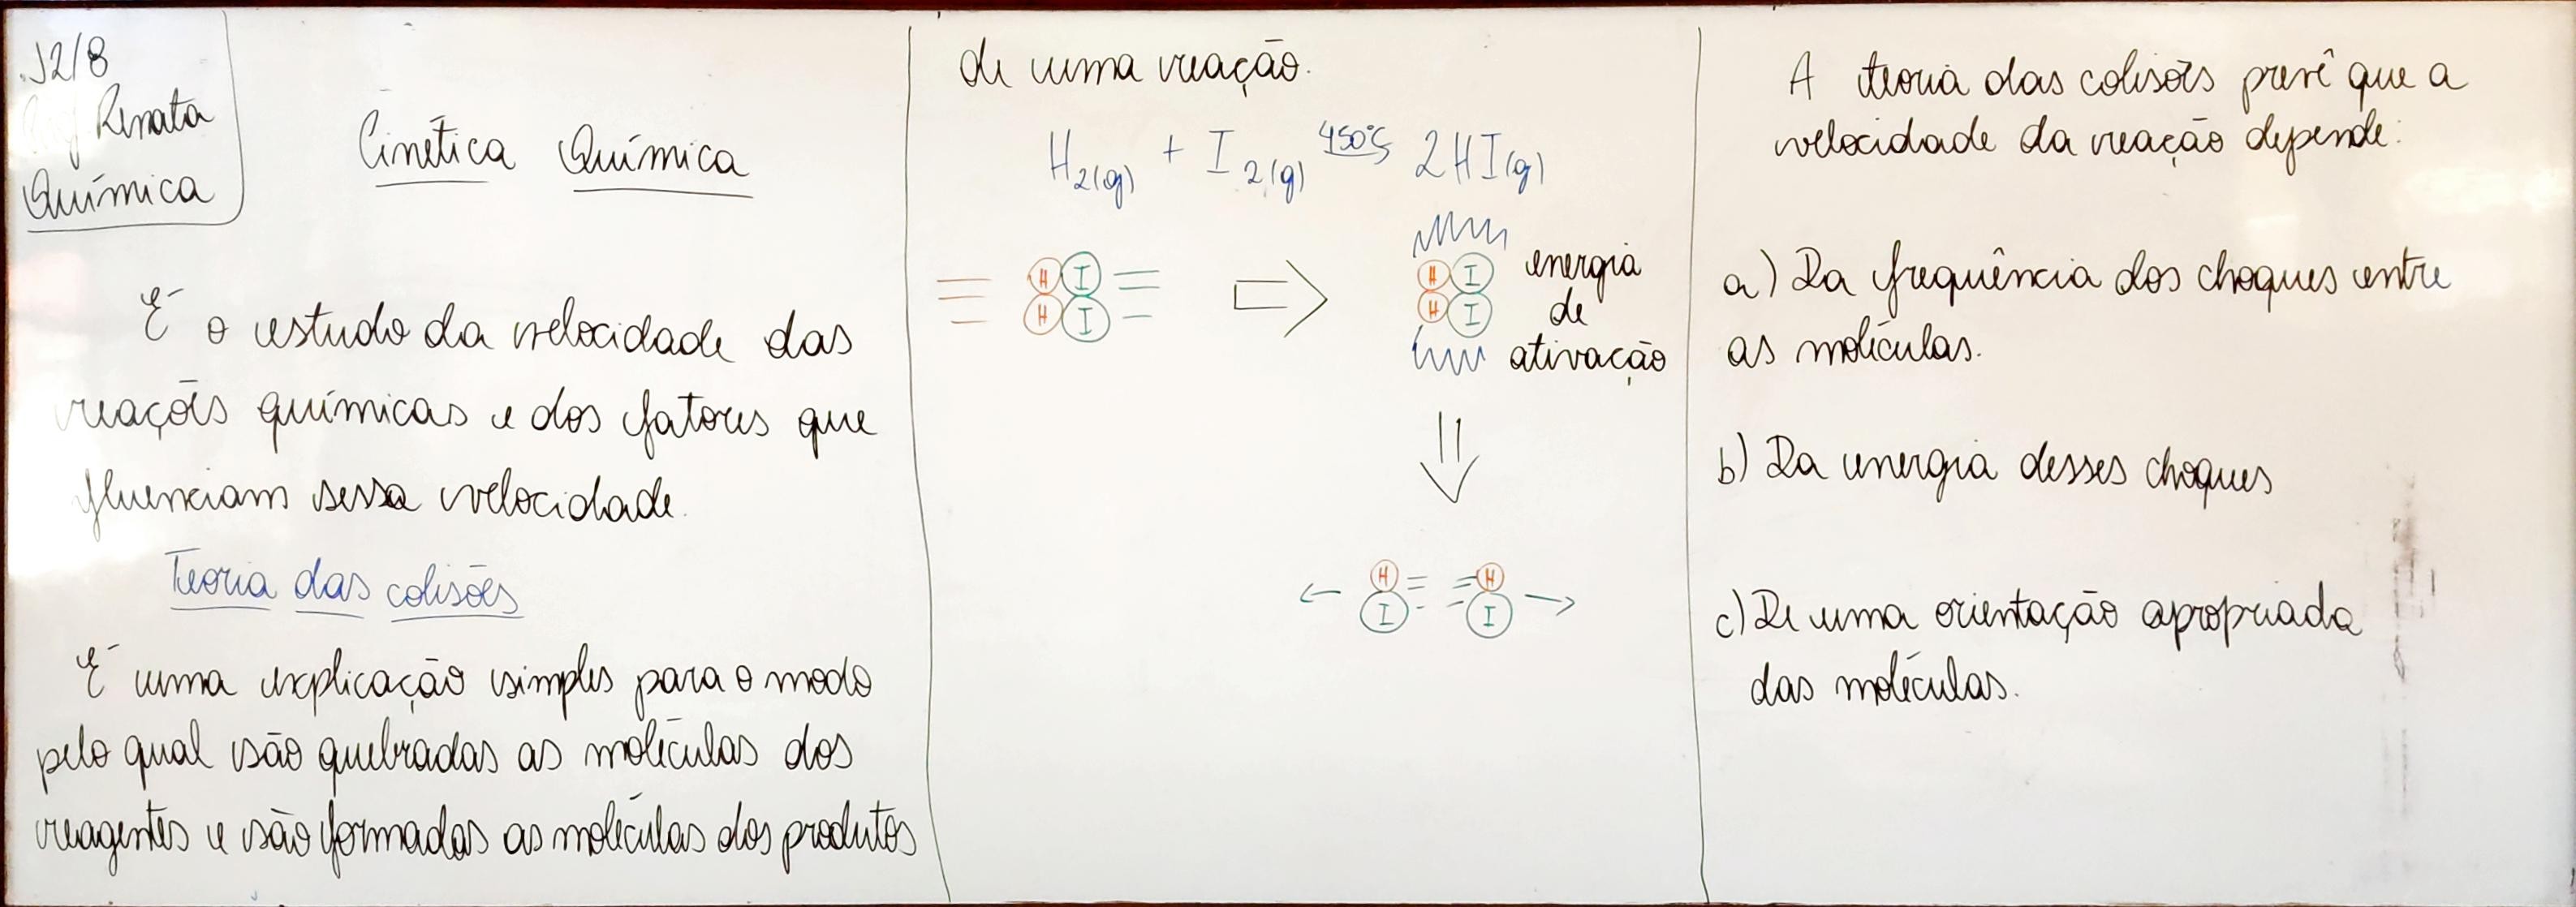 12/8
Prof Renata
Química
Cinética Química
É o estudo da velocidade das
reações químicas e dos fatores que
fluenciam essa velocidade.
Teoria das colisões
É uma explicação simples para o modo
pelo qual são quebradas as moléculas dos
reagentes e são formadas as moléculas dos produtos
de uma reação.
H2(g) + I2(g) 450°C 2HI(g)
H I
H I
H I
H I
energia
de
ativação
H H
I I
A teoria das colisões prevê que a
velocidade da reação depende:
a) Da frequência dos choques entre
as moléculas.
b) Da energia desses choques
c) De uma orientação apropriada
das moléculas.